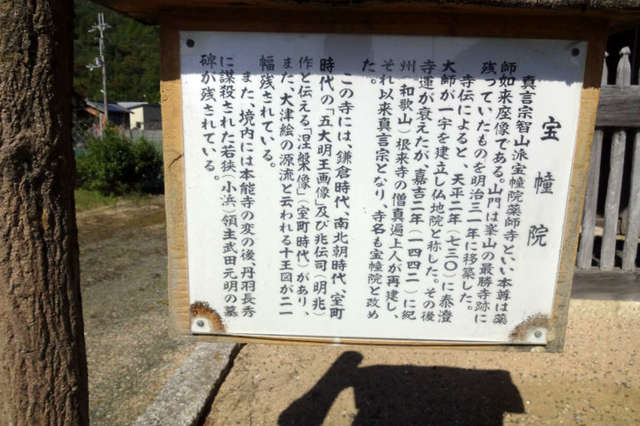 宝幢院
真言宗智山派宝幢院薬師寺といい本尊は薬
師如来座像である。山門は峯山の最勝寺跡に
残っていたものを明治二一年に移築した。
寺伝によると、天平二年（七三〇）に泰澄
大師が一宇を建立し仏地院と称した。その後
寺運が衰えたが、嘉吉二年（一四四二）に紀
州（和歌山）根来寺の僧真遍上人が再建し、
それ以来真言宗となり、寺名も宝幢院と改め
た。
この寺には、鎌倉時代、南北朝時代、室町
時代の「五大明王画像」及び兆伝司（明兆）
作と伝える「涅槃像」（室町時代）があり、
また、大津絵の源流と云われる十王図が二一
幅残されている。
また、境内には本能寺の変の後、丹羽長秀
に謀殺された若狭（小浜）領主武田元明の墓
碑が残されている。